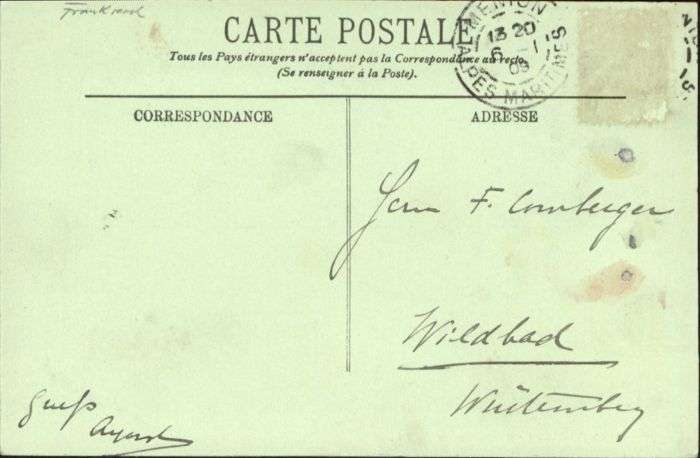 Frankreich
CARTE POSTALE
Tous les Pays étrangers n'acceptent pas la Correspondance au recto.
(Se renseigner à la Poste).
MENTON
13 20
6 - 1
09
ALPES MARITIMES
CORRESPONDANCE
ADRESSE
Herrn F. Comberger
Wildbad
Würtemberg
Gruß